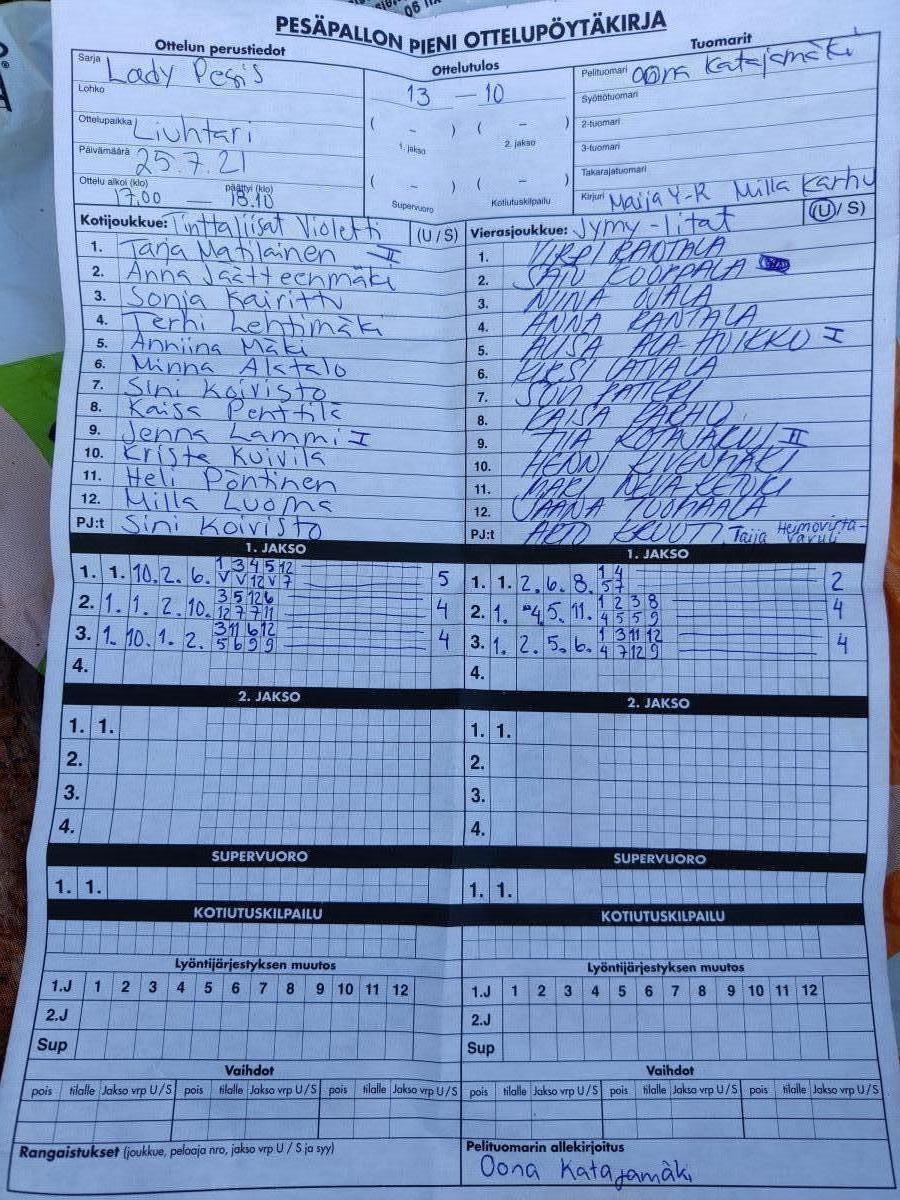 PESÄPALLON PIENI OTTELUPÖYTÄKIRJA
Ottelun perustiedot
Sarja Lady Pesis
Lohko
Ottelupaikka Liuhtari
Päivämäärä 25.7.21
Ottelu alkoi (klo) päättyi (klo)
17.00 — 18.10
Ottelutulos
13 — 10
( - ) ( - )
1. jakso 2. jakso
( - ) ( - )
Supervuoro Kotiutuskilpailu
Tuomarit
Pelituomari Oona Katajamäki
Syöttötuomari
2-tuomari
3-tuomari
Takarajatuomari
Kirjuri Maija Y-R Milla Karhu
Kotijoukkue: Tinttaliisat Violetti (U / S)
1. Tarja Matilainen II
2. Anna Jäätteenmäki
3. Sonja Kairittu
4. Terhi Lehtimäki
5. Anniina Mäki
6. Minna Alatalo
7. Sini Koivisto
8. Kaisa Penttilä
9. Jenna Lammi I
10. Kriste Kuivila
11. Heli Pöntinen
12. Milla Luoma
PJ:t Sini Koivisto
Vierasjoukkue: Jymy-litat (U / S)
1. VIRPI RANTALA
2. SATU KOORPALA
3. NIINA OJALA
4. ANNA RANTALA
5. ALA-HUIKKU I
6. KIRSI LATVALA
7.
8. KAISA KARHU
9. TIA II
10. HENNI KIVENMÄKI
11. MARI
12. JAANA TUOMAALA
PJ:t ARTO Taija Heimovirta-
1. JAKSO
1. 1. 10. 2. 6. 1 3 4 5 12 5
V V 12 V 7
2. 1. 1. 2. 10. 3 5 12 6 4
12 7 7 11
3. 1. 10. 1. 2. 3 11 6 12 4
5 6 9 9
4.
1. JAKSO
1. 1. 2. 6. 8. 1 4 2
5 7
2. 1. 4. 5. 11. 1 2 3 8 4
4 5 5 9
3. 1. 2. 5. 6. 1 3 11 12 4
4 7 12 9
4.
2. JAKSO
1. 1.
2.
3.
4.
2. JAKSO
1. 1.
2.
3.
4.
SUPERVUORO
1. 1.
SUPERVUORO
1. 1.
KOTIUTUSKILPAILU
KOTIUTUSKILPAILU
Lyöntijärjestyksen muutos
1.J 1 2 3 4 5 6 7 8 9 10 11 12
2.J
Sup
Lyöntijärjestyksen muutos
1.J 1 2 3 4 5 6 7 8 9 10 11 12
2.J
Sup
Vaihdot
pois tilalle Jakso vrp U / S pois tilalle Jakso vrp U / S pois tilalle Jakso vrp U / S
Vaihdot
pois tilalle Jakso vrp U / S pois tilalle Jakso vrp U / S pois tilalle Jakso vrp U / S
Rangaistukset (joukkue, pelaaja nro, jakso vrp U / S ja syy)
Pelituomarin allekirjoitus
Oona Katajamäki